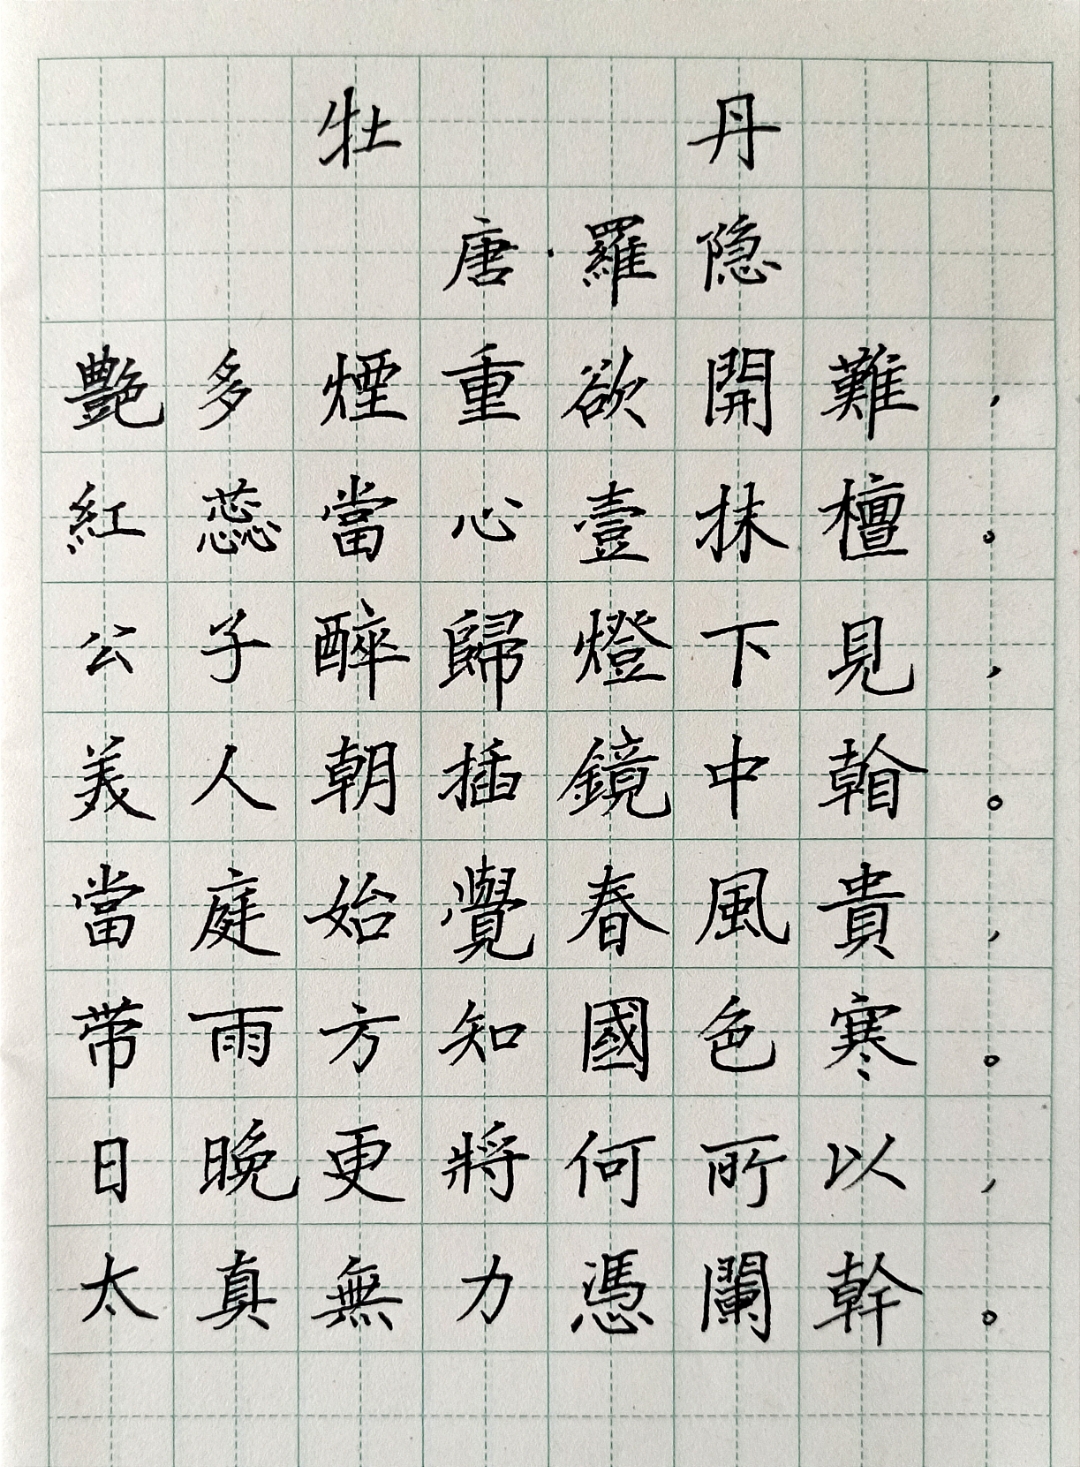 牡丹
唐·羅隐
艷多煙重欲開難，
紅蕊當心壹抹檀。
公子醉歸燈下見，
美人朝插鏡中看。
當庭始覺春風貴，
带雨方知國色寒。
日晚更將何所以，
太真無力憑闌幹。